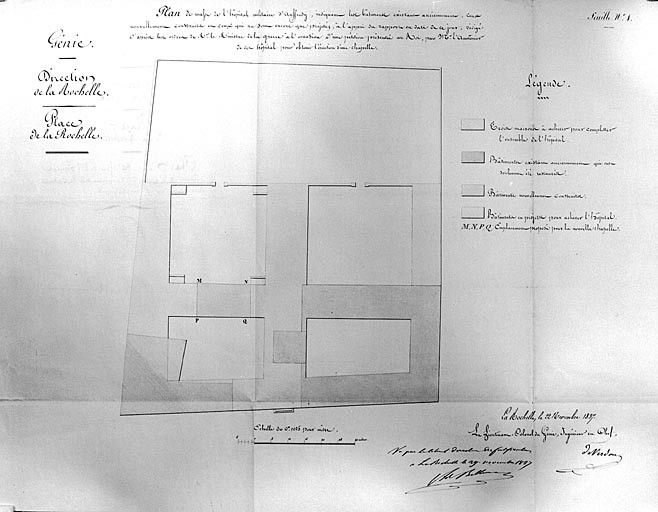 Plan de masse de l'hôpital militaire d'Auffredy, indiquant les bâtiments existant anciennement, ceux
nouvellement construits ou ceux qui ne sont encore que projetés, à l'appui du rapport en date de ce jour, rédigé
d'après les ordres de Mr. le Ministre de la guerre à l'occasion d'une pétition présentée au Roi, par Mr. l'Aumônier
de cet hôpital pour obtenir l'érection d'une chapelle.
Feuille No. 1.
Génie.
Direction
de la Rochelle.
Place
de la Rochelle.
Légende.
maisons à acheter pour compléter
l'ensemble de l'hôpital.
Bâtiments existans anciennement qui ont
seulement été restaurés.
Bâtiments nouvellement construits.
Bâtiments en projet pour achever l'hôpital.
M.N.P.Q. Emplacement proposé pour la nouvelle chapelle.
M N
P Q
Echelle de pour mètre.
La Rochelle, le 22 Novembre 1837.
Le Lieutenant Colonel du Génie, Ingénieur en Chef,
Vu par le Colonel Directeur des fortifications
à La Rochelle le 29 novembre 1837